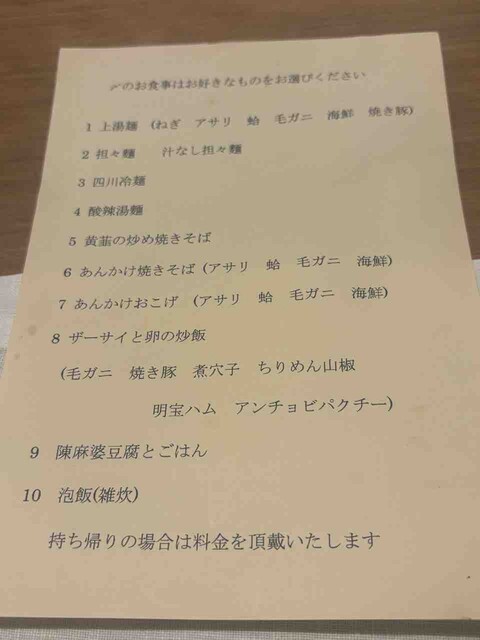 〆のお食事はお好きなものをお選びください
1 上湯麺 (ねぎ アサリ 蛤 毛ガニ 海鮮 焼き豚)
2 担々麺 汁なし担々麺
3 四川冷麺
4 酸辣湯麺
5 黄韮の炒め焼きそば
6 あんかけ焼きそば (アサリ 蛤 毛ガニ 海鮮)
7 あんかけおこげ (アサリ 蛤 毛ガニ 海鮮)
8 ザーサイと卵の炒飯
(毛ガニ 焼き豚 煮穴子 ちりめん山椒
明宝ハム アンチョビパクチー)
9 陳麻婆豆腐とごはん
10 泡飯(雑炊)
持ち帰りの場合は料金を頂戴いたします